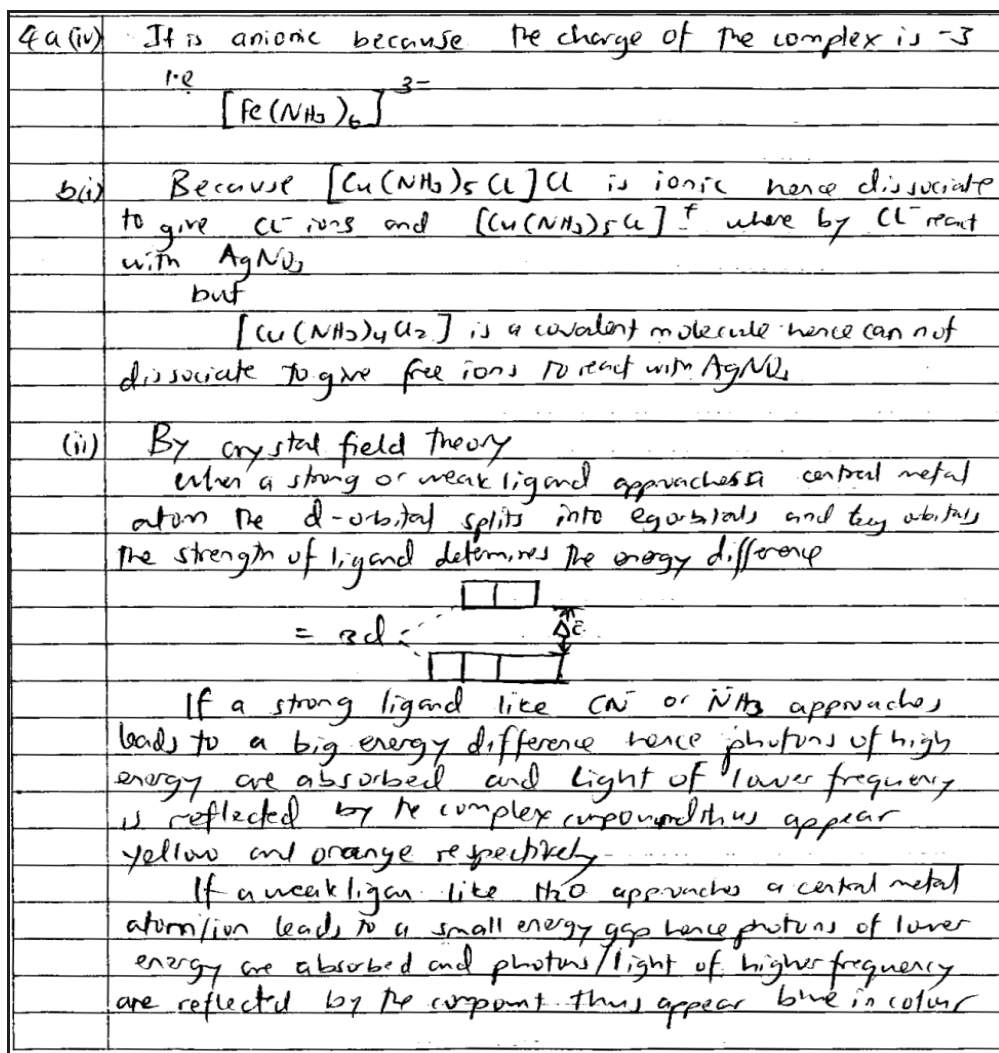 4a (iv) It is anionic because the charge of the complex is -3
i.e
[Fe(NH3)6]3-
b(i) Because [Cu(NH3)5Cl]Cl is ionic hence dissociate
to give Cl- ions and [Cu(NH3)5Cl]+ where by Cl- react
with AgNO3
but
[Cu(NH3)4Cl2] is a covalent molecule hence can not
dissociate to give free ions to react with AgNO3
(ii) By crystal field theory
when a strong or weak ligand approaches a central metal
atom the d-orbital splits into eg orbitals and t2g orbitals
the strength of ligand determines the energy difference
= 3d
ΔE
If a strong ligand like CN- or NH3 approaches
leads to a big energy difference hence photons of high
energy are absorbed and light of lower frequency
is reflected by the complex compound thus appear
yellow and orange respectively
If a weak ligan like H2O approaches a central metal
atom/ion leads to a small energy gap hence photons of lower
energy are absorbed and photons/light of higher frequency
are reflected by the thus appear blue in colour